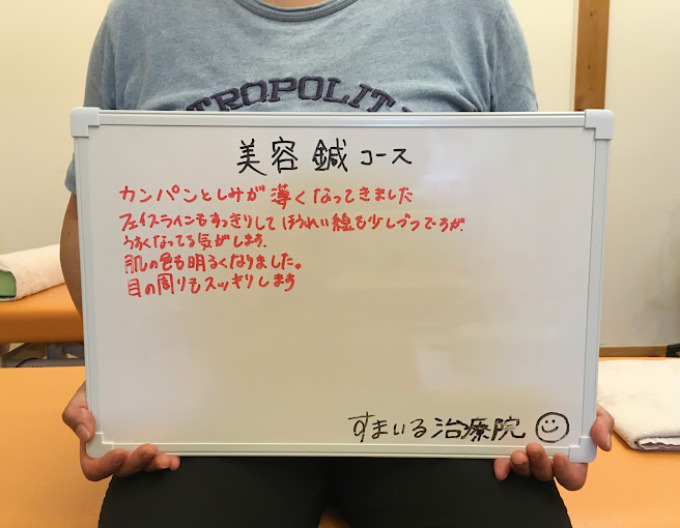 TROPOLIT
美容鍼コース
カンパンとしみが薄くなってきました
フェイスラインもすっきりして ほうれい線も少しづつですが、
うすくなってる気がします。
肌の色も明るくなりました。
目の周りもスッキリします
すまいる治療院